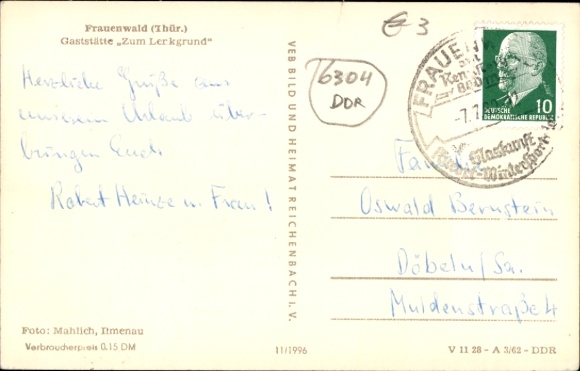 Frauenwald (Thür.)
Gaststätte „Zum Lenkgrund“
Herzliche Grüße aus
unserem Urlaub über-
bringen Euch
Robert Heinze u. Frau!
Foto: Mahlich, Ilmenau
Verbraucherpreis 0.15 DM
VEB BILD UND HEIMAT REICHENBACH i. V.
11/1996
6304
DDR
3
FRAUENW
-7.7.6
Glaskunst
Wintersport
10
DEUTSCHE
DEMOKRATISCHE REPUBLIK
Familie
Oswald Bernstein
Döbeln/Sa.
Muldenstraße 4
V 11 28 - A 3/62 - DDR